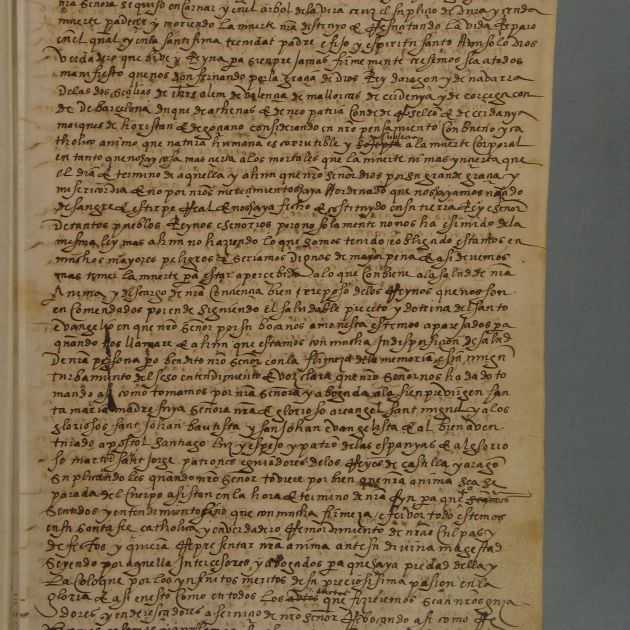 nra Señora se quiso encarnar y en el arbol dela vera cruz el suplicio de
muerte padecer y moriendo la muerte nra destruyo & Restaurando la vida Reparo
en el qual y en la santissima trenidat padre e fijo y espiritu santo un solo dios
verdadero que bive y Reyna pa sienpre jamas firmemente creemos sea a todos
manifiesto que nos don fernando por la gracia de dios Rey daragon y de navarra
de las dos Secilias de iherusalem de valencia de mallorcas de cerdenya y de corcega con
de de barcelona duque de athenas & de neo patria conde de Rosello & de cerdanya
marques de horistan & de goçiano considerando en nro pensamiento con bueno y ca
tholico animo que natura humana es corrutible y subjecta a la muerte corporal
en tanto que no ay cosa mas cierta a los mortales que la muerte ni mas yncierta que
el dia & termino de aquella y ahun que nro Señor dios por su grande gracia y
misericordia & no por nros merecimientos haya hordenado que nos ayamos naçido
de sangre & estirpe Real & nos haya fecho & constituydo en su tierra Rey e señor
de tantos pueblos Reynos e señorios por que no solamente no nos ha esimido de la
mesma ley mas ahun no haziendo lo que somos tenido e obligado estamos en
muchos mayores peligros & seriamos dignos de mayor pena & asi devemos
mas temer la muerte pa estar apercebido a lo que conbiene a la salud de nra
Anima y descargo de nra conciencia bien e reposo de los Reynos que nos son
en comendados por ende siguiendo el saludable precebto y dotrina del santo
evangelio en que nro Señor por su boca nos amonesta estemos aparejados pa
quando nos llamare & ahun que estamos con mucha Indisposicion de salud
de nra persona por bendito nro Señor con la firmeza de la memoria & sin ningun
turbamiento del seso entendimiento & voz clara que nro Señor nos ha dado to
mando asi como tomamos por nra Señora y abogada a la sienpre virgen san
ta maria madre suya Señora nra & glorioso arcangel sant miguel y a los
gloriosos sant Johan bautista y san Johan evangelista & al bienaven
turado apostol Santiago luz y espejo y patron de las espanyas & al glorio
so martir sant Jorge patrones e guiadores de los Reyes de castilla y aragon
suplicando les quando nro Señor toviere por bien que nra anima sea se
parada del cuerpo asistan en la hora & termino de nra fyn pa que
sentidos y entendimiento que con mucha firmeza e fe en todo estemos
en su santa fee catholica y en verdadero Remordimiento de nras culpas y
defectos y quiera Representar nra anima ante su divina magestad
Seyendo por aquella Intercesores y abogados pa que haya piedad della y
La coloque por los ynfinitos meritos de su preciosissima pasion en la
gloria & asi en esto como en todos los autos que fizieremos sean nros guia
dores y enderesçadores a servicio de nro Señor Rebocando asi como Re